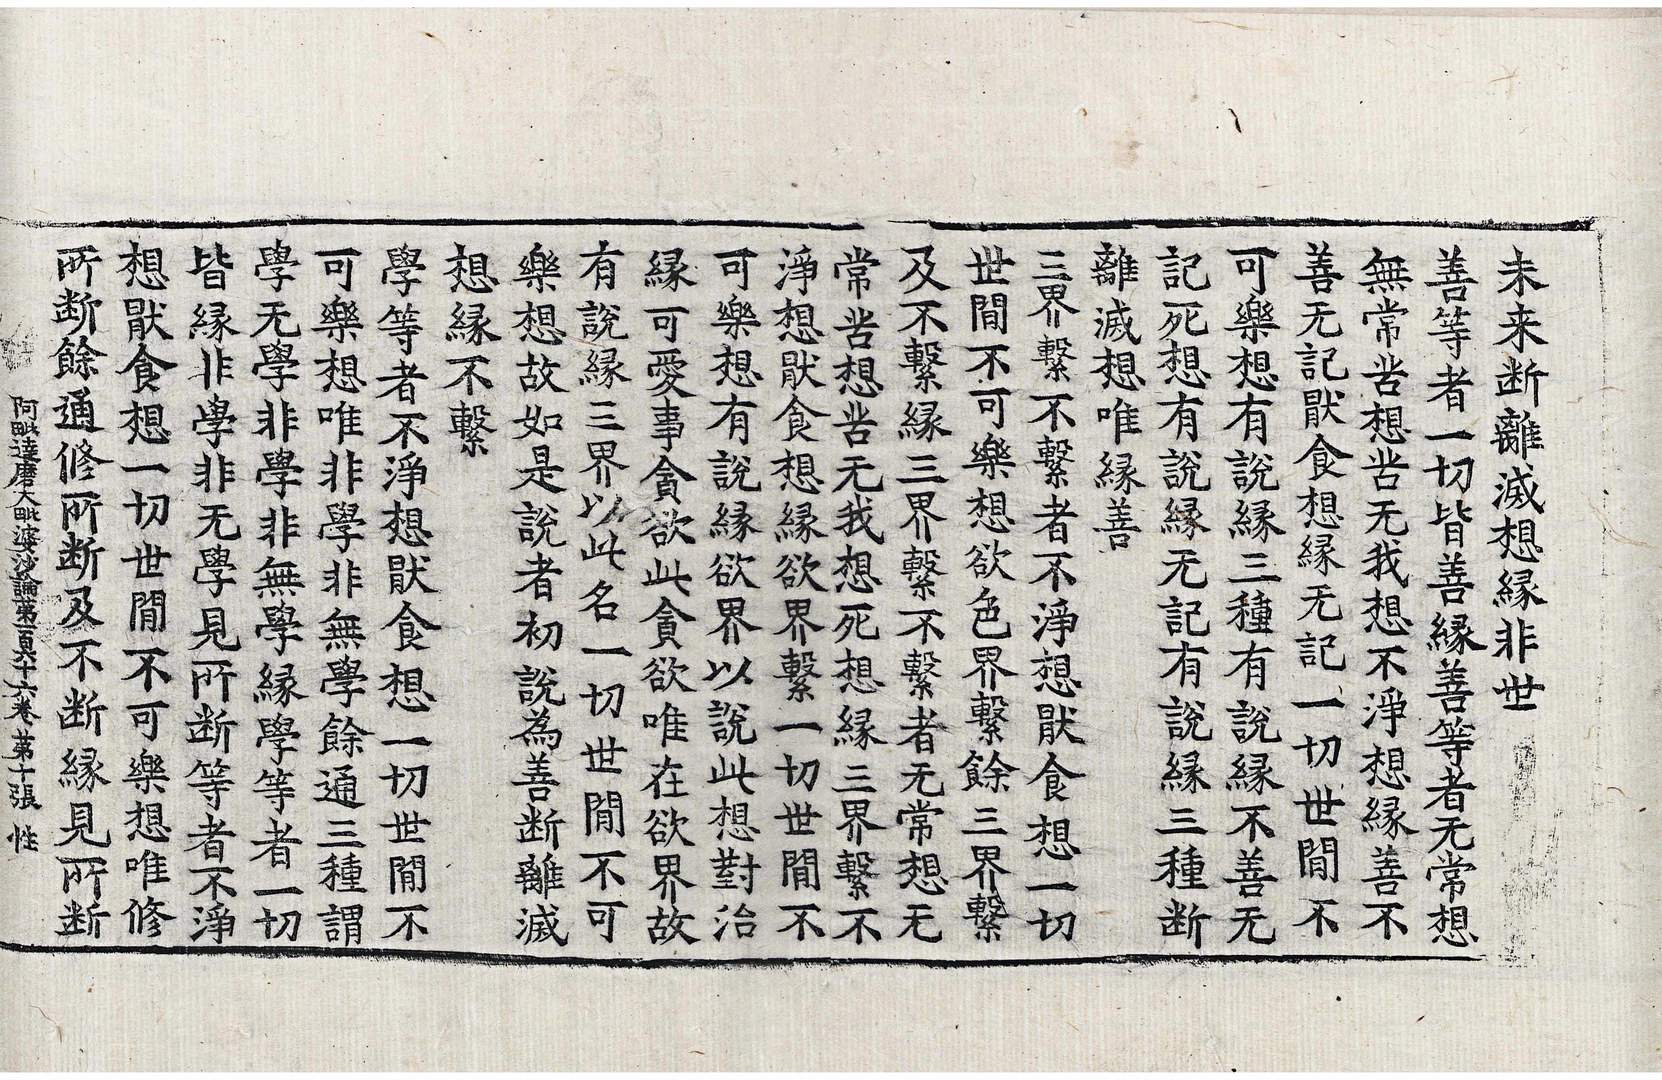 未来断離滅想縁非世
善等者一切皆善縁善等者无常想
無常苦想苦无我想不淨想縁善不
善无記猒食想縁无記一切世閒不
可樂想有說縁三種有說縁不善无
記死想有說縁无記有說縁三種断
離滅想唯縁善
三界繫不繫者不淨想猒食想一切
世閒不可樂想欲色界繫餘三界繫
及不繫縁三界繫不繫者无常想无
常苦想苦无我想死想縁三界繫不
淨想猒食想縁欲界繫一切世閒不
可樂想有說縁欲界以說此想對治
縁可愛事貪欲此貪欲唯在欲界故
有說縁三界以此名一切世閒不可
樂想故如是說者初說為善断離滅
想縁不繫
學等者不淨想猒食想一切世閒不
可樂想唯非學非無學餘通三種謂
學无學非學非無學縁學等者一切
皆縁非學非无學見所断等者不淨
想猒食想一切世閒不可樂想唯修
所断餘通修所断及不断縁見所断
阿毗達磨大毗婆沙論第一百六十六卷 第十張 性